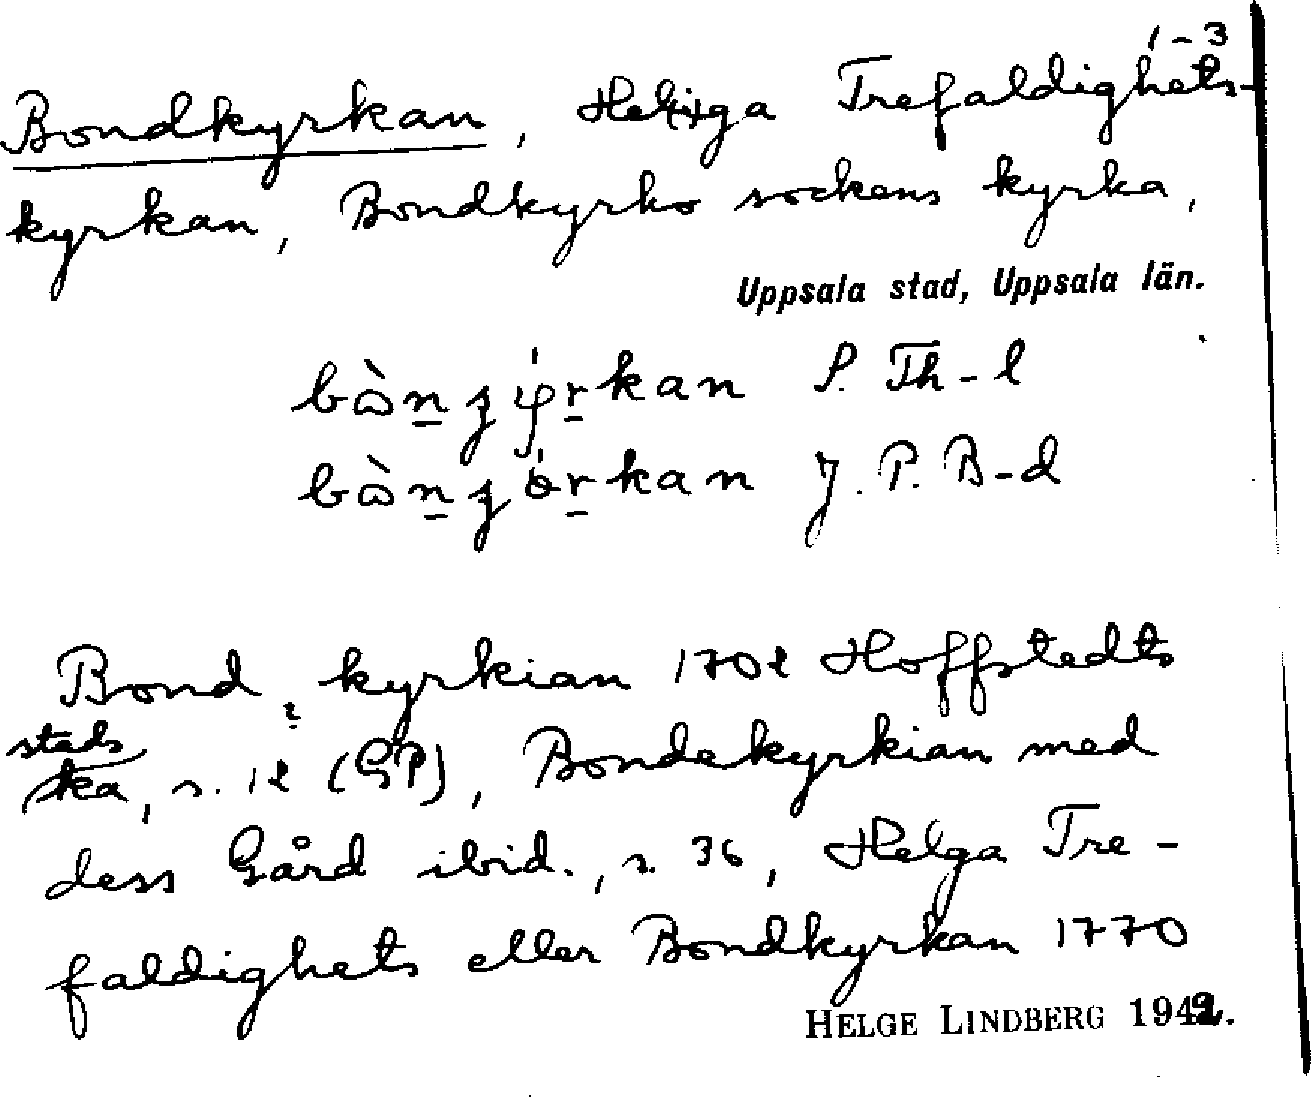 1-3
Bondkyrkan, Heliga Trefaldighets-
kyrkan, Bondkyrko sockens kyrka,
Uppsala stad, Uppsala län.
S. Th-l
J. P. B-d
Bond kyrkian 1702 Hoffstedts
stads
ka, s. 12 (GP), Bondekyrkian med
dess Gård ibid., s. 36, Helga Tre-
faldighets eller Bondkyrkan 1770
HELGE LINDBERG 1942.